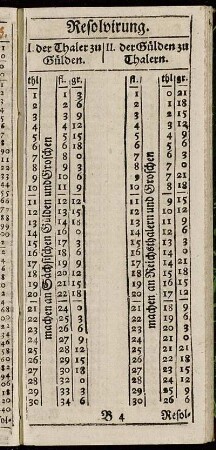 Resolvirung.
I. der Thaler zu | II. der Gülden zu
Gülden. | Thalern.
thl fl. gr. fl. thl gr.
machen an Sächsischen Gülden und Groschen
machen an Reichsthalern und Groschen
1 1 3 1 0 21
2 2 6 2 1 18
3 3 9 3 2 15
4 4 12 4 3 12
5 5 15 5 4 9
6 6 18 6 5 6
7 8 0 7 6 3
8 9 3 8 7 0
9 10 6 9 7 21
10 11 9 10 8 18
11 12 12 11 9 15
12 13 15 12 10 12
13 14 18 13 11 9
14 16 0 14 12 6
15 17 3 15 13 3
16 18 6 16 14 0
17 19 9 17 14 21
18 20 12 18 15 18
19 21 15 19 16 15
20 22 18 20 17 12
21 24 0 21 18 9
22 25 3 22 19 6
23 26 6 23 20 3
24 27 9 24 21 0
25 28 12 25 21 21
26 29 15 26 22 18
27 30 18 27 23 15
28 32 0 28 24 12
29 33 3 29 25 9
30 34 6 30 26 6
B 4 Resol-